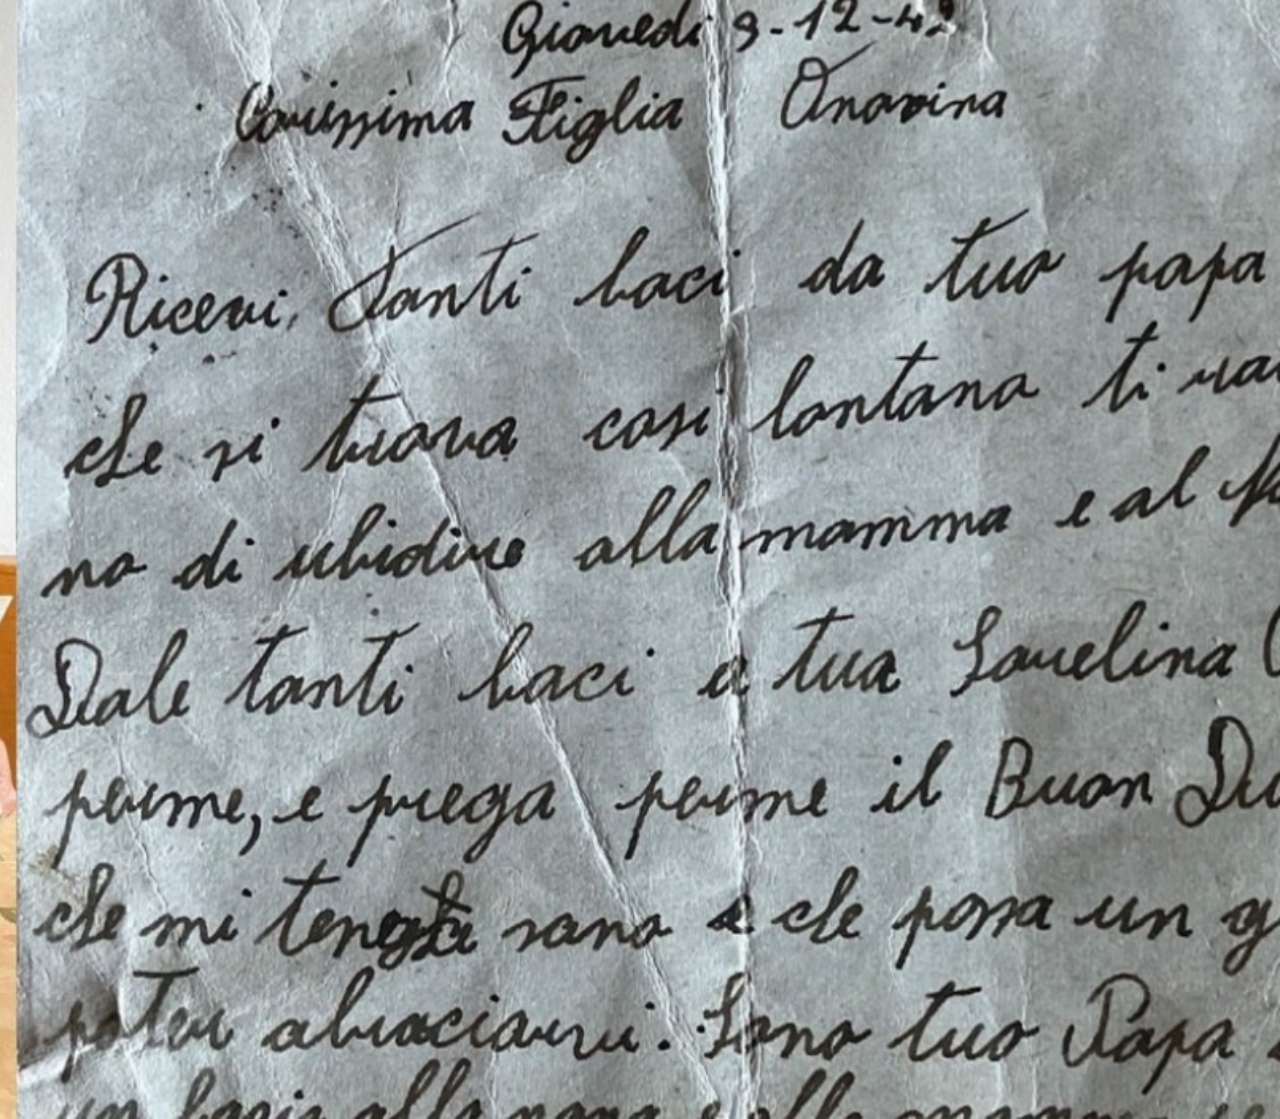 Giovedi 9-12-42
Carissima Figlia Onorina
Ricevi, Tanti baci da tuo papa
che si trova cosi lontano ti rac
no di ubidire alla mamma e al
Dale tanti baci a tua Sorelina
perme, e prega perme il Buon Di
che mi tenga sano e che possa un g
poter abraciarvi. Sono tuo Papa
un bacio alla nona e alla mamma